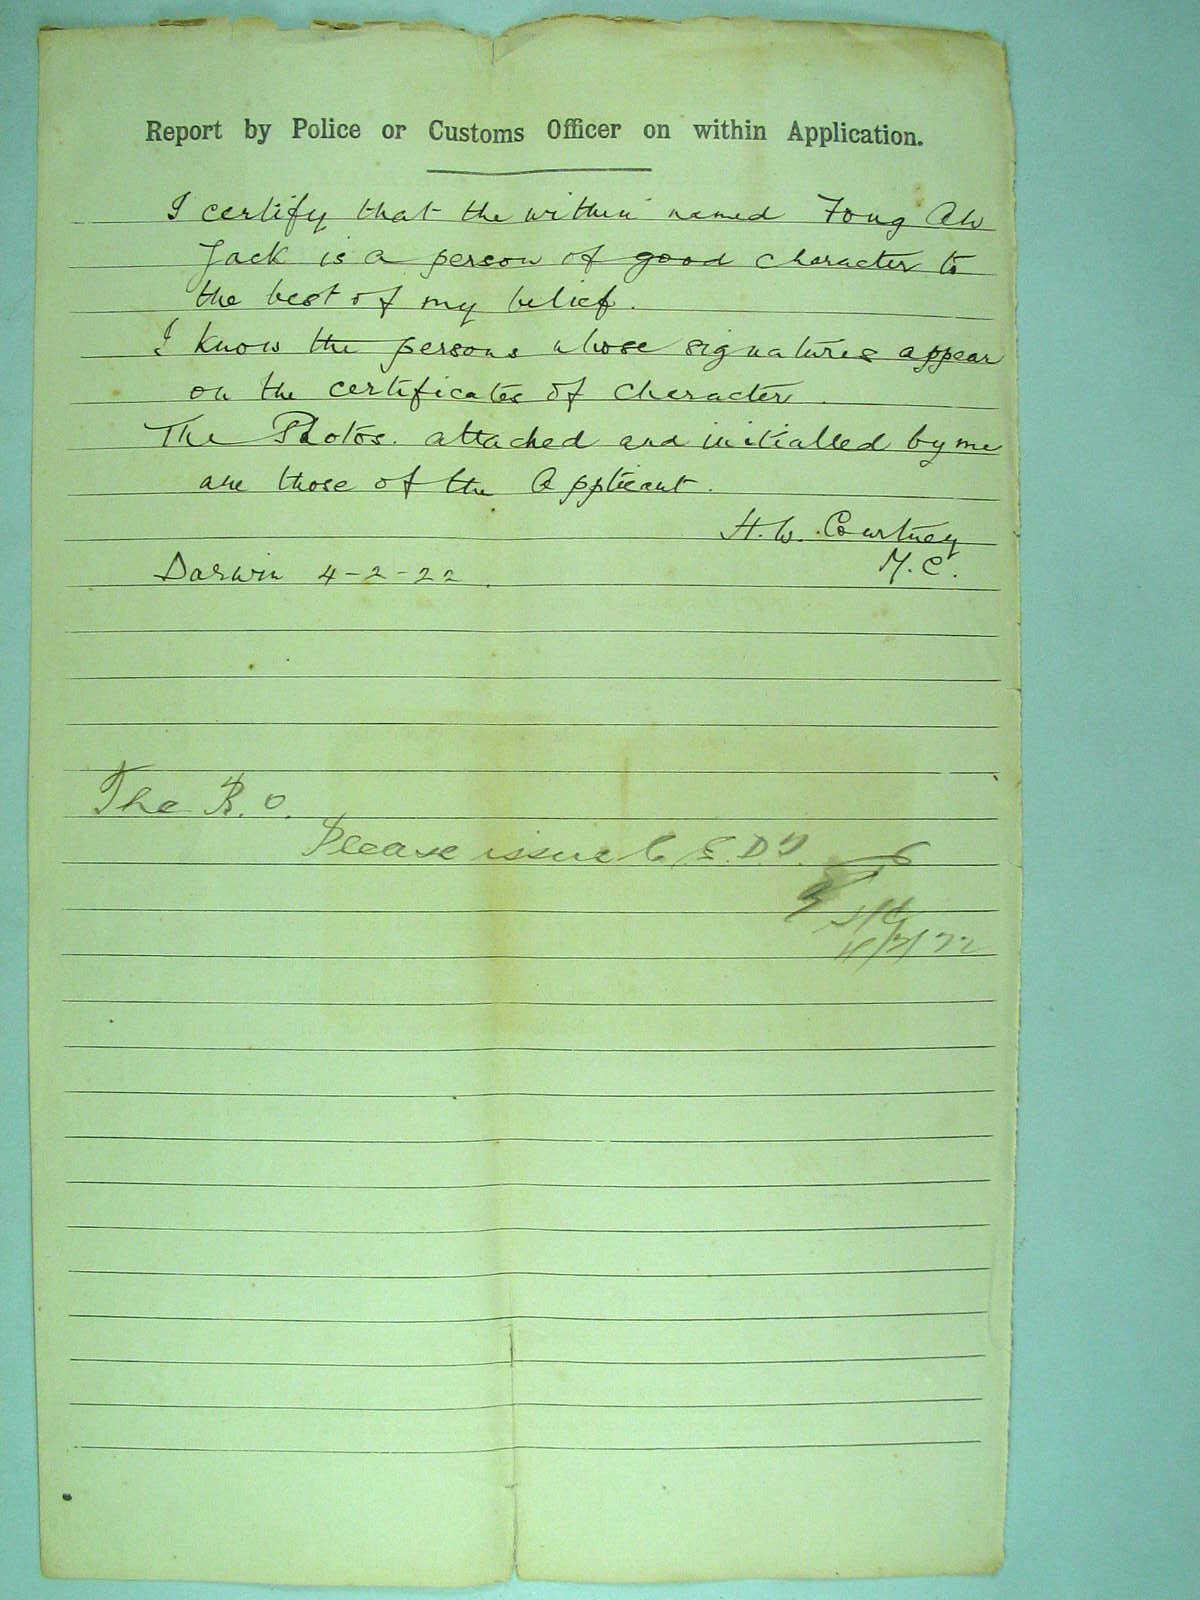 Report by Police or Customs Officer on within Application.
I certify that the within named Fong Ah
Jack is a person of good character to
the best of my belief.
I know the persons whose signatures appear
on the certificates of character.
The Photos. attached and initialled by me
are those of the Applicant.
H. W. Courtney
M. C.
Darwin 4-2-22.
The B. O.
Please issue C. E. D. T.